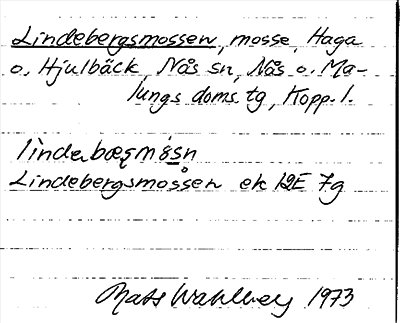 Lindebergsmossen, mosse, Haga
o. Hjulbäck, Nås sn, Nås o. Ma-
lungs doms. tg, Kopp. l.
Lindebergsmossen ek 12E 7g
Mats Wahlberg 1973